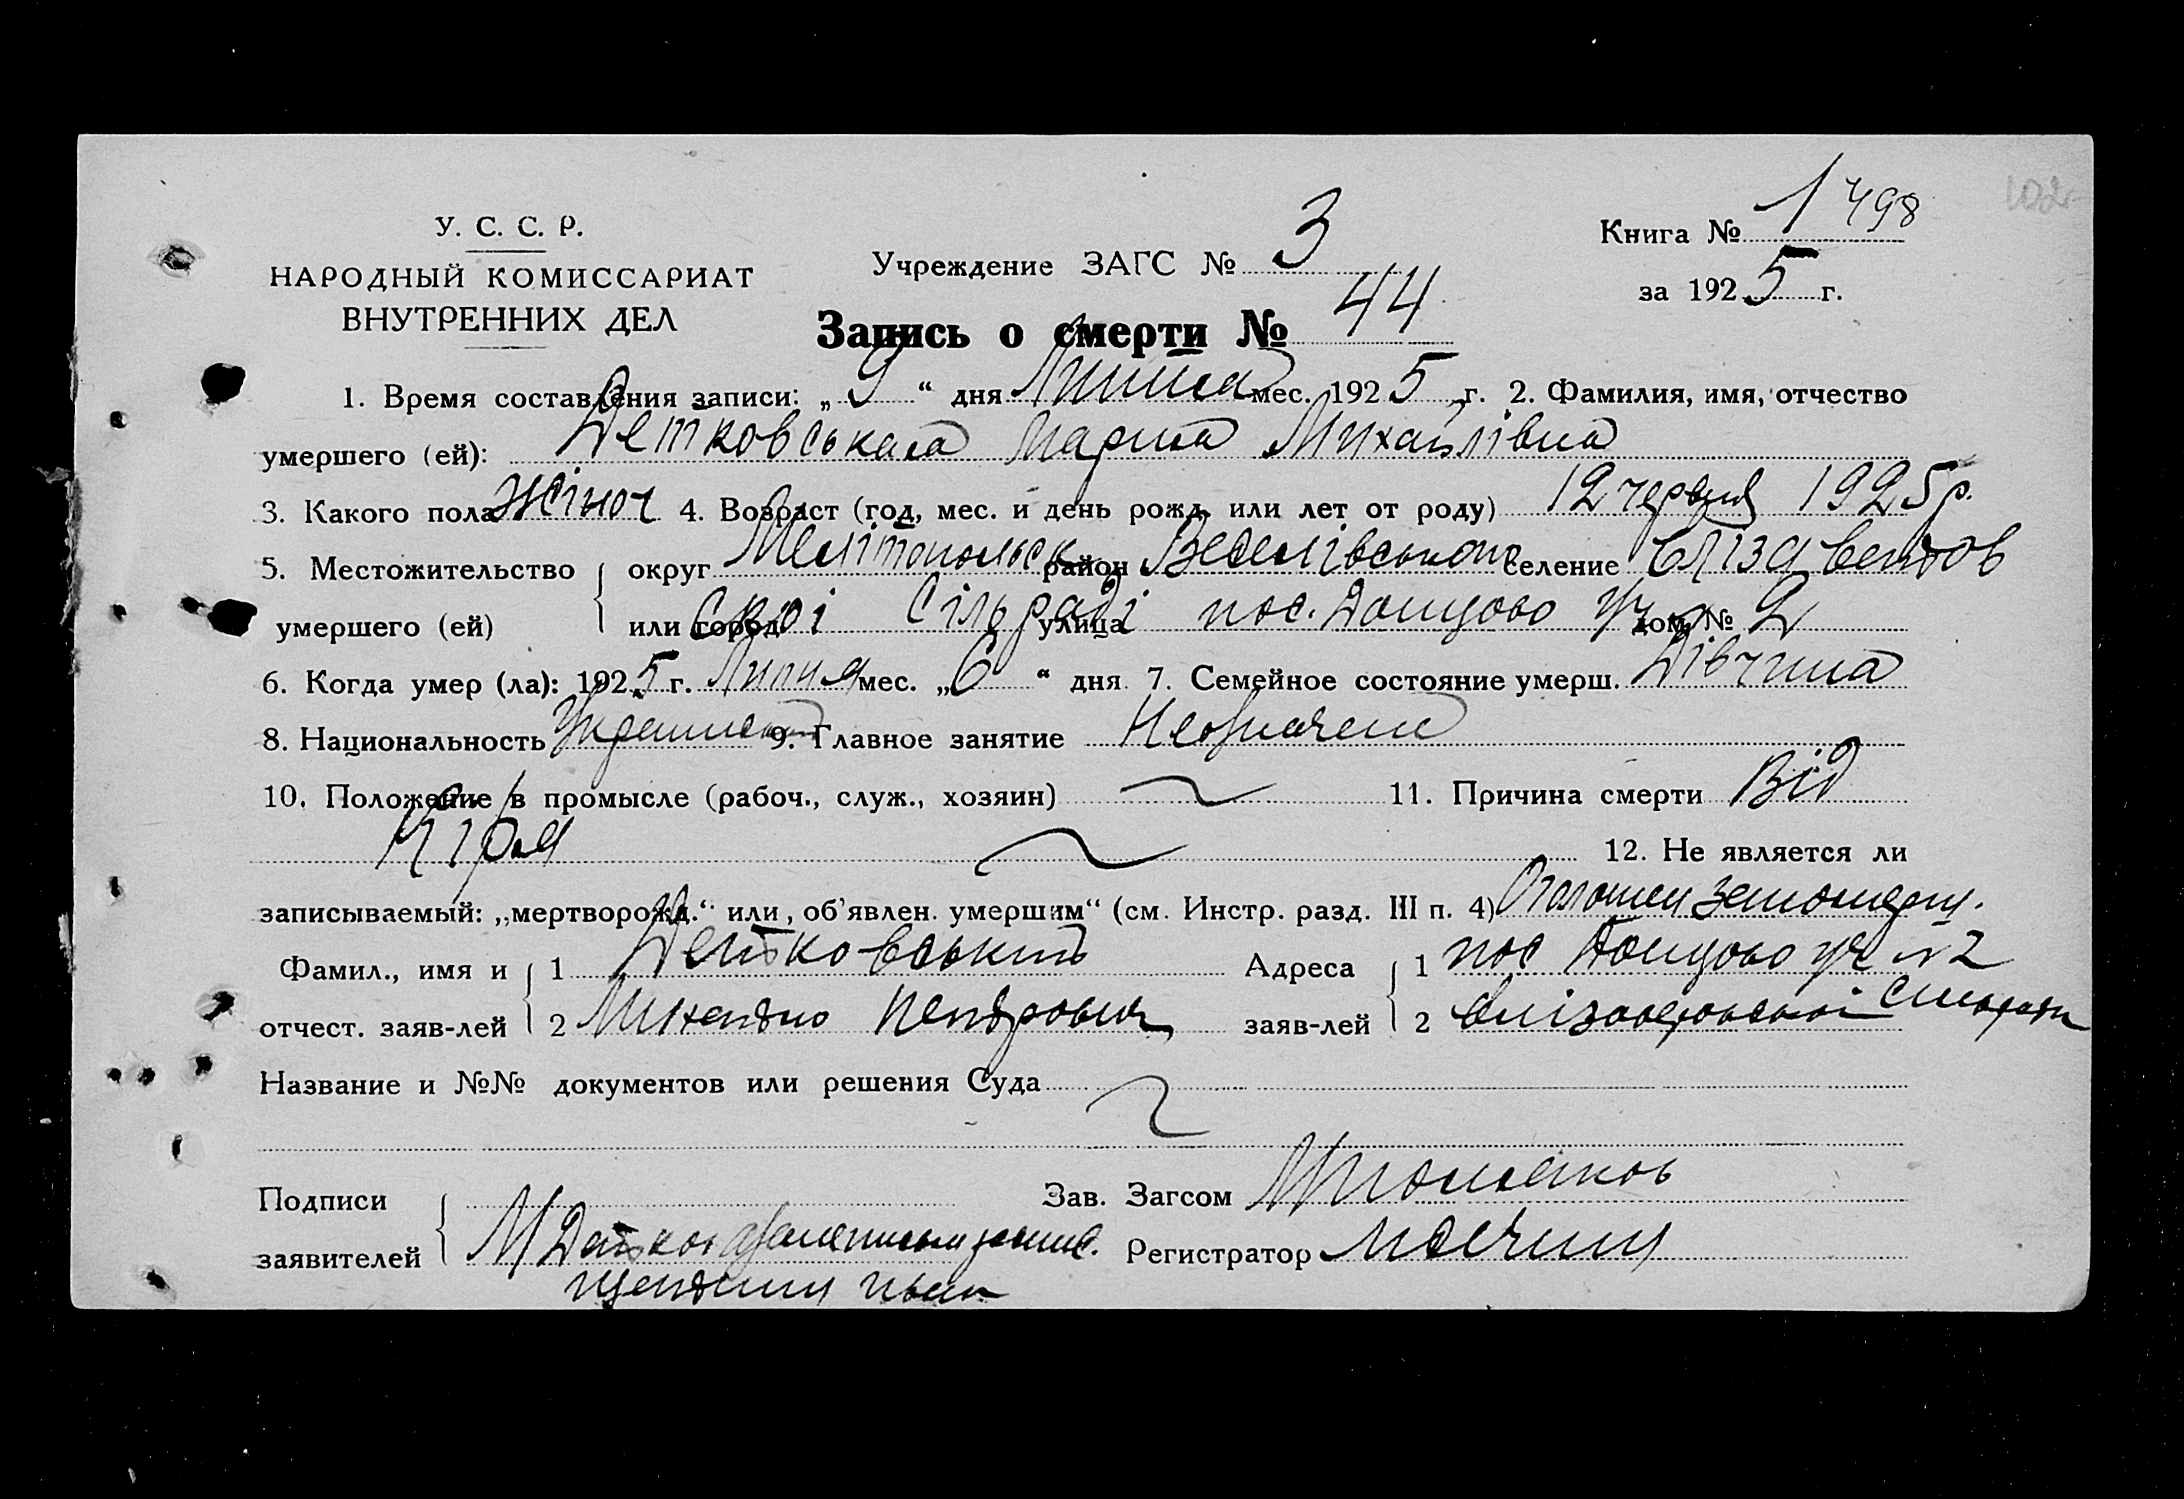 У. С. С. Р.
НАРОДНЫЙ КОМИССАРИАТ
ВНУТРЕННИХ ДЕЛ
Учреждение ЗАГС № 3
Книга № 1 498
за 1925 г.
Запись о смерти № 44
1. Время составления записи: „9“ дня Липня мес. 1925 г. 2. Фамилия, имя, отчество
умершего (ей): Детковська Мария Михайлівна
3. Какого пола жіноч 4. Возраст (год, мес. и день рожд. или лет от роду) 12 червня 1925 р.
5. Местожительство округ Мелітопольск район Веселівськом селение Єлізаветов
умершего (ей) или город ській Сільраді улица пос. Донцово уч дом № 2
6. Когда умер (ла): 1925 г. Липня мес. „6“ дня 7. Семейное состояние умерш. Дівчина
8. Национальность 9. Главное занятие
10. Положение в промысле (рабоч., служ., хозяин) 11. Причина смерти Від
Кіря
12. Не является ли
записываемый: „мертворожд.“ или, об'явлен. умершим“ (см. Инстр. разд. III п. 4)
Фамил., имя и 1 Детковський Адреса 1 пос Донцово уч № 2
отчест. заяв-лей 2 Михайло Петрович заяв-лей 2 Сильради
Название и №№ документов или решения Суда
Подписи Зав. Загсом
заявителей М Детков Регистратор